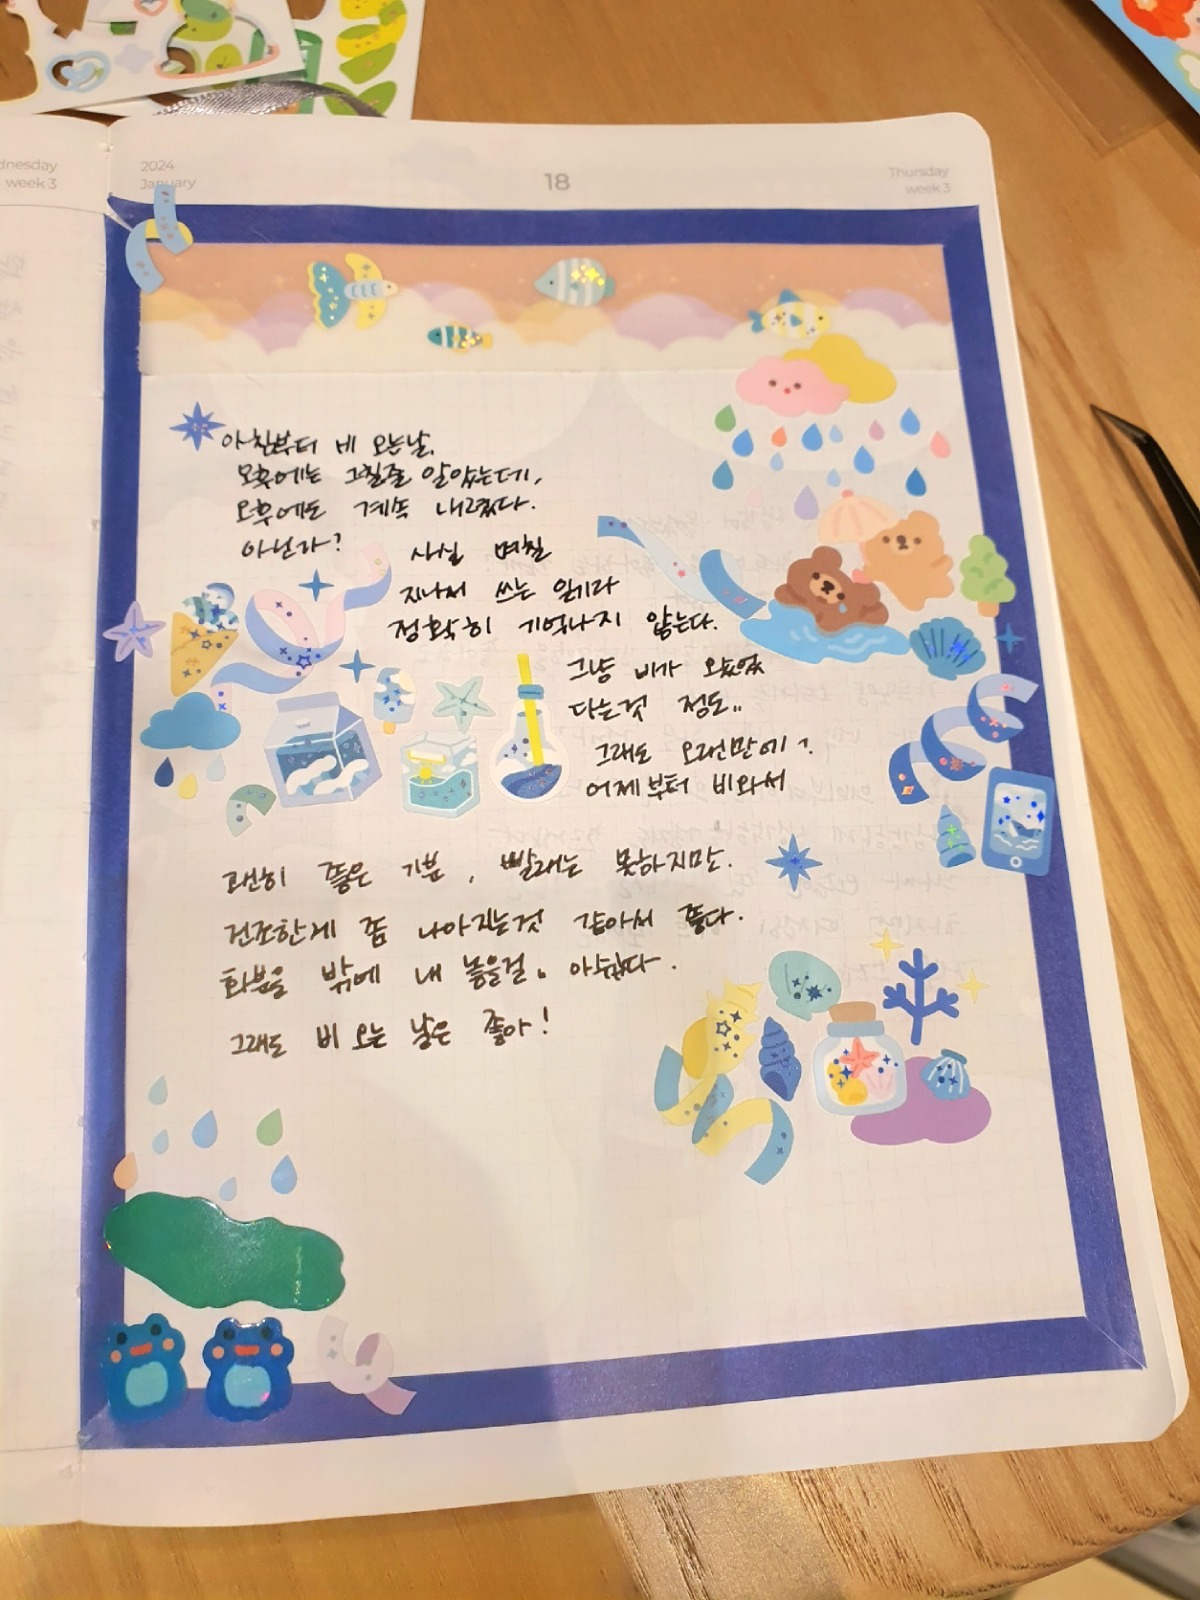 dnesday
week 3
2024
January
18
Thursday
week 3
아침부터 비 오는날.
오후에는 그칠줄 알았는데,
오후에도 계속 내렸다.
아닌가? 사실 며칠
지나서 쓰는 일기라
정확히 기억나지 않는다.
그냥 비가 오랬었
다는것 정도..
그래도 오랜만에?
어제부터 비와서
괜히 좋은 기분, 빨래는 못하지마소.
건조한게 좀 나아지는것 같아서 좋다.
화분을 밖에 내 놓을걸. 아쉽다.
그래도 비 오는 날은 좋아!